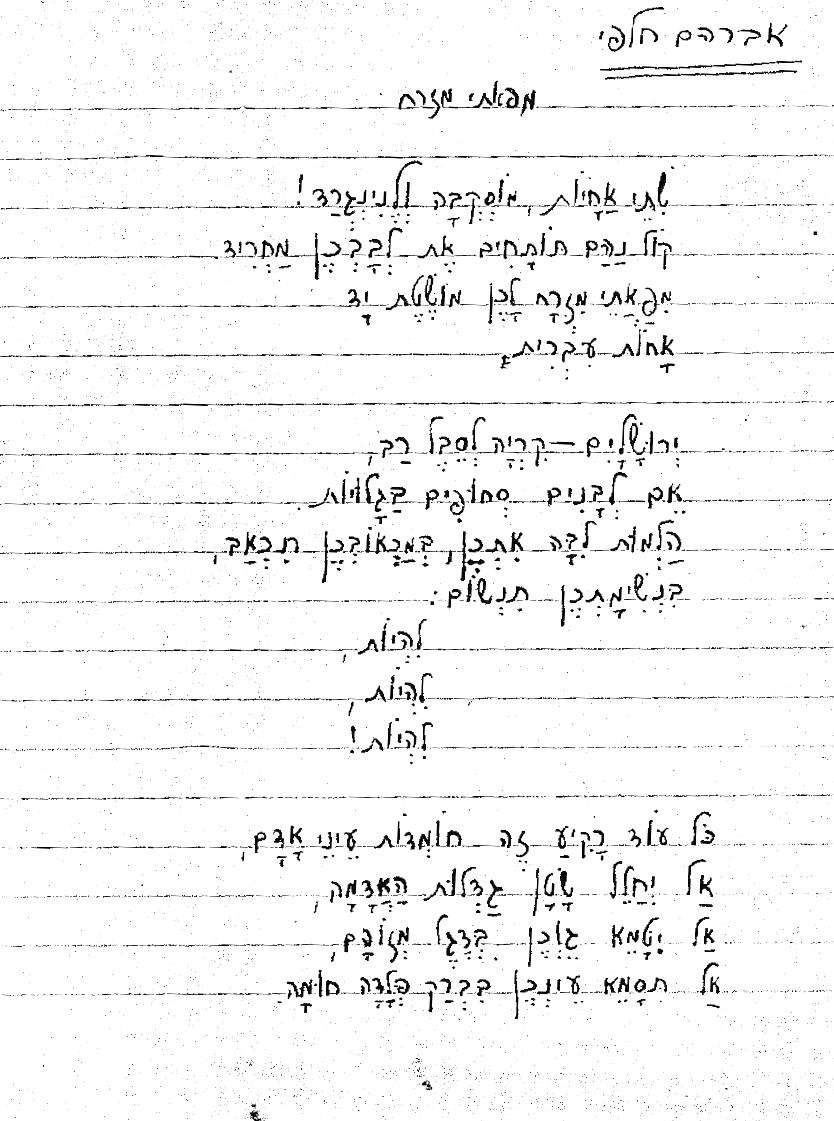 אברהם חלפי
מפאתי מזרח
שְׁתֵּי אֲחָיוֹת, מוֹסְקְבָה וְלֶנִינְגְרַד!
קוֹל נַהַם תּוֹתָחִים אֶת לְבַבְכֶן מַחְרִיד.
מִפַּאֲתֵי מִזְרָח לָכֶן מוֹשֶׁטֶת יָד
אָחוֹת עִבְרִית.
יְרוּשָׁלַיִם – קִרְיָה לְסֵבֶל רַב,
אֵם לְבָנִים סְחוּפִים בַּגָּלוּיוֹת.
הַלְמוּת לִבָּהּ אִתְּכֶן, בְּמַכְאוֹבְכֶן תִּכְאַב,
בִּנְשִׁימַתְכֶן תִּנְשׁוֹם:
לִהְיוֹת,
לִהְיוֹת,
לִהְיוֹת!
כֹּל עוֹד רָקִיעַ זֶה חוֹמְדוֹת עֵינֵי אָדָם,
אַל יְחַלֵּל שָׂטָן גַּדְלוּת הָאֲדָמָה,
אַל יְטַמֵּא גּוֹכֶן בְּדֶגֶל מְזוֹהָם,
אַל תְּסַמֵּא עֵינְכֶן בִּבְרַק פְּלָדָה חוּמָה.